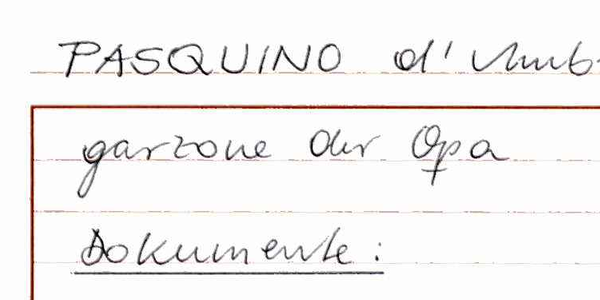 PASQUINO d'Umb
garzone der Opa
Dokumente: